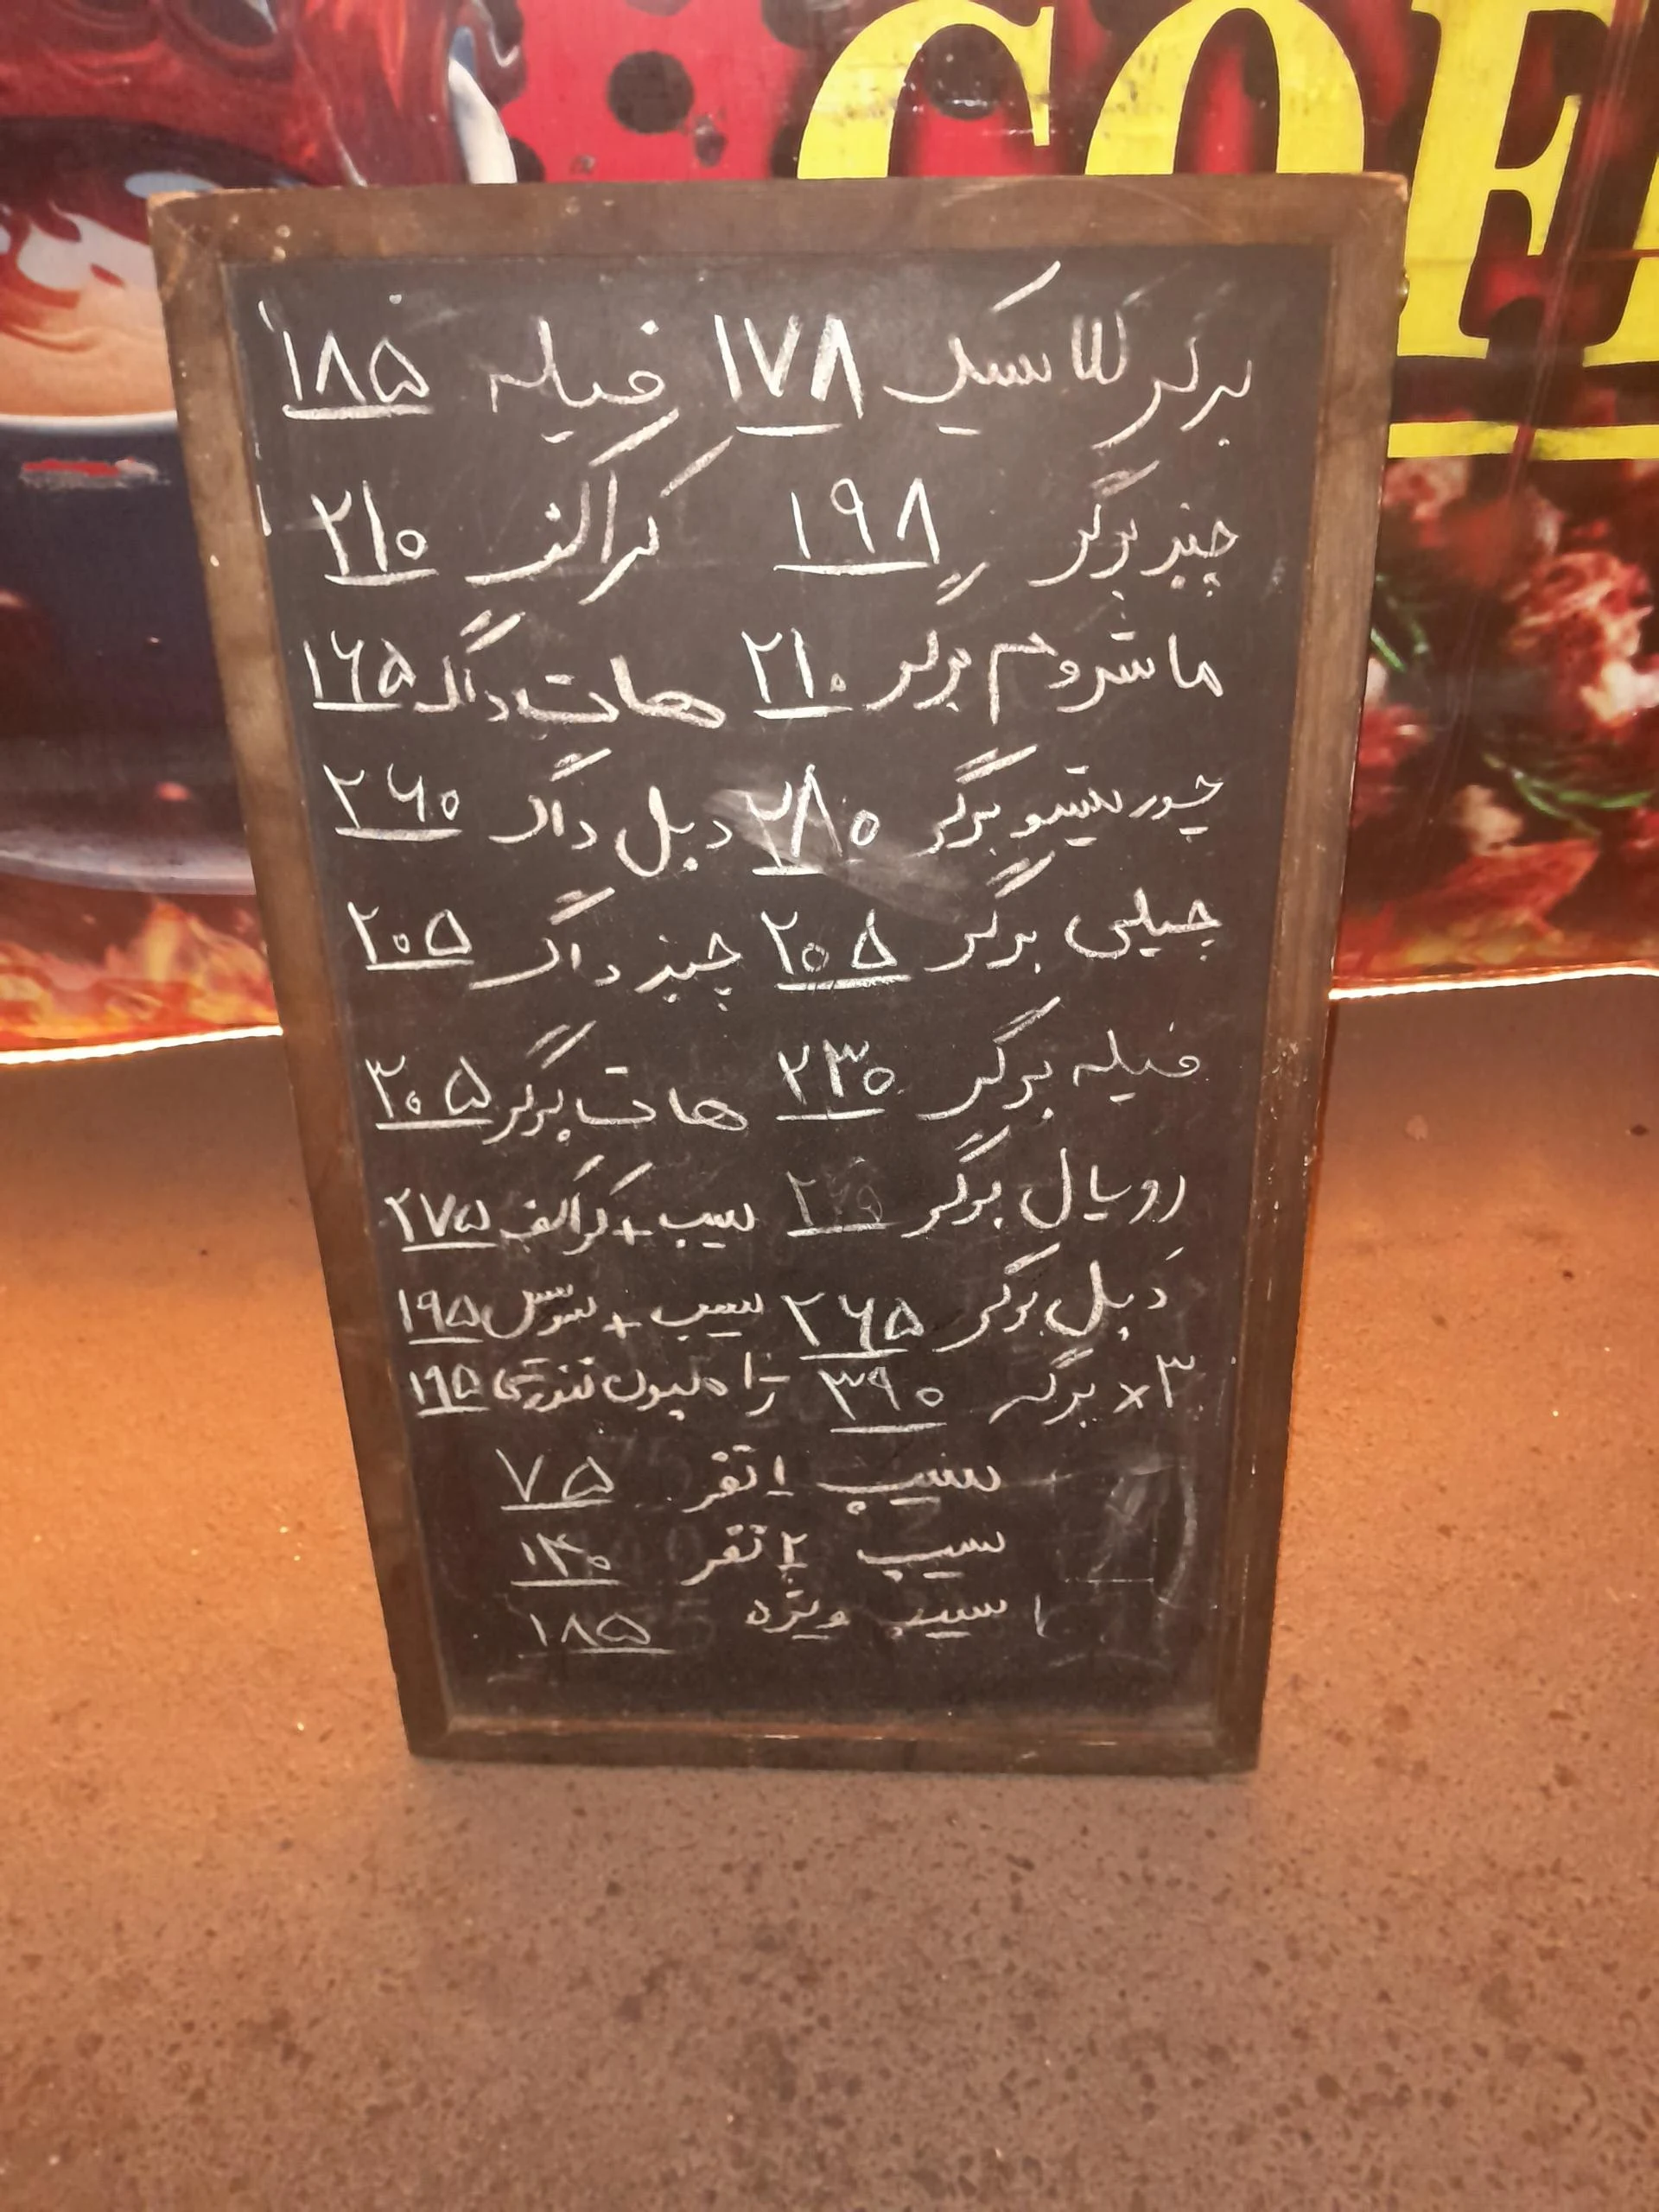 COF
برگر کلاسیک ۱۷۸ فیله ۱۸۵
چیزبرگر ۱۹۸ کراکف ۲۱۰
ماشروم برگر ۲۱۰ هات داگ ۱۶۵
چوریتسو برگر ۲۸۰ دبل داگ ۲۶۰
چیلی برگر ۲۰۵ چیز داگ ۲۰۵
فیله برگر ۲۳۰ هات برگر ۳۰۵
رویال برگر سیب + کراکف ۲۷۵
دبل برگر ۲۶۵ سیب + سوس ۱۹۵
۳× برگر ۳۹۰ ژامبون تنوری ۱۹۵
سیب ۱ نفر ۷۵
سیب ۲ نفر ۱۴۰
سیب ویژه ۱۸۵